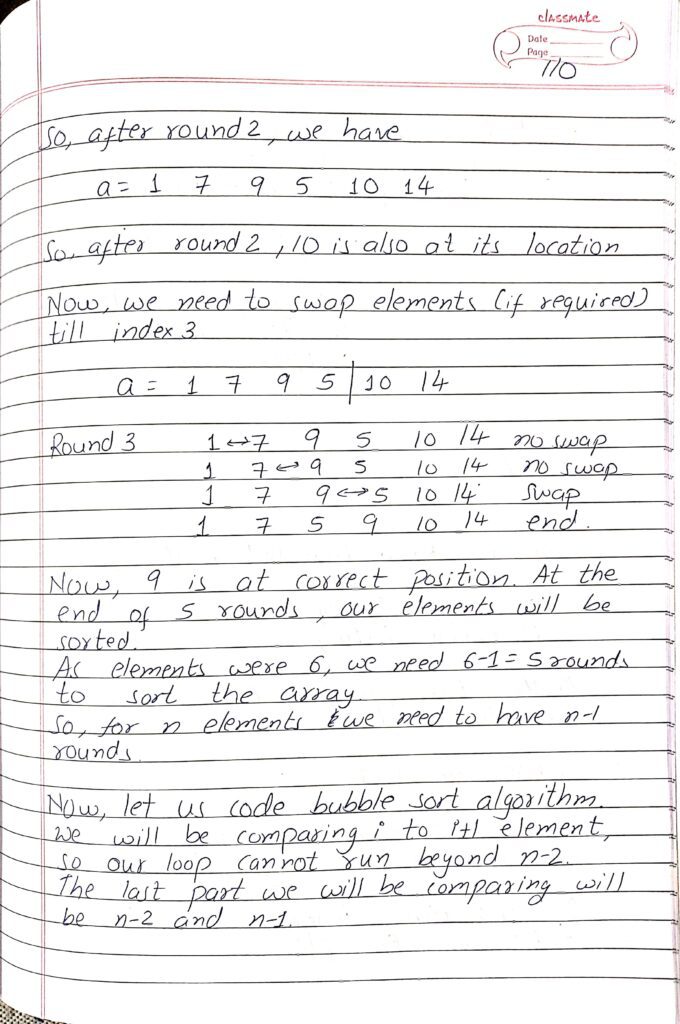 classmate
Date
Page
110
So, after round 2, we have
a = 1 7 9 5 10 14
So, after round 2, 10 is also at its location
Now, we need to swap elements (if required)
till index 3
a = 1 7 9 5 | 10 14
Round 3 1 ↔ 7 9 5 10 14 no swap
1 7 ↔ 9 5 10 14 no swap
1 7 9 ↔ 5 10 14 swap
1 7 5 9 10 14 end.
Now, 9 is at correct position. At the
end of 5 rounds, our elements will be
sorted.
As elements were 6, we need 6-1 = 5 rounds
to sort the array.
So, for n elements we need to have n-1
rounds.
Now, let us code bubble sort algorithm.
We will be comparing i to i+1 element,
so our loop cannot run beyond n-2.
The last part we will be comparing will
be n-2 and n-1.